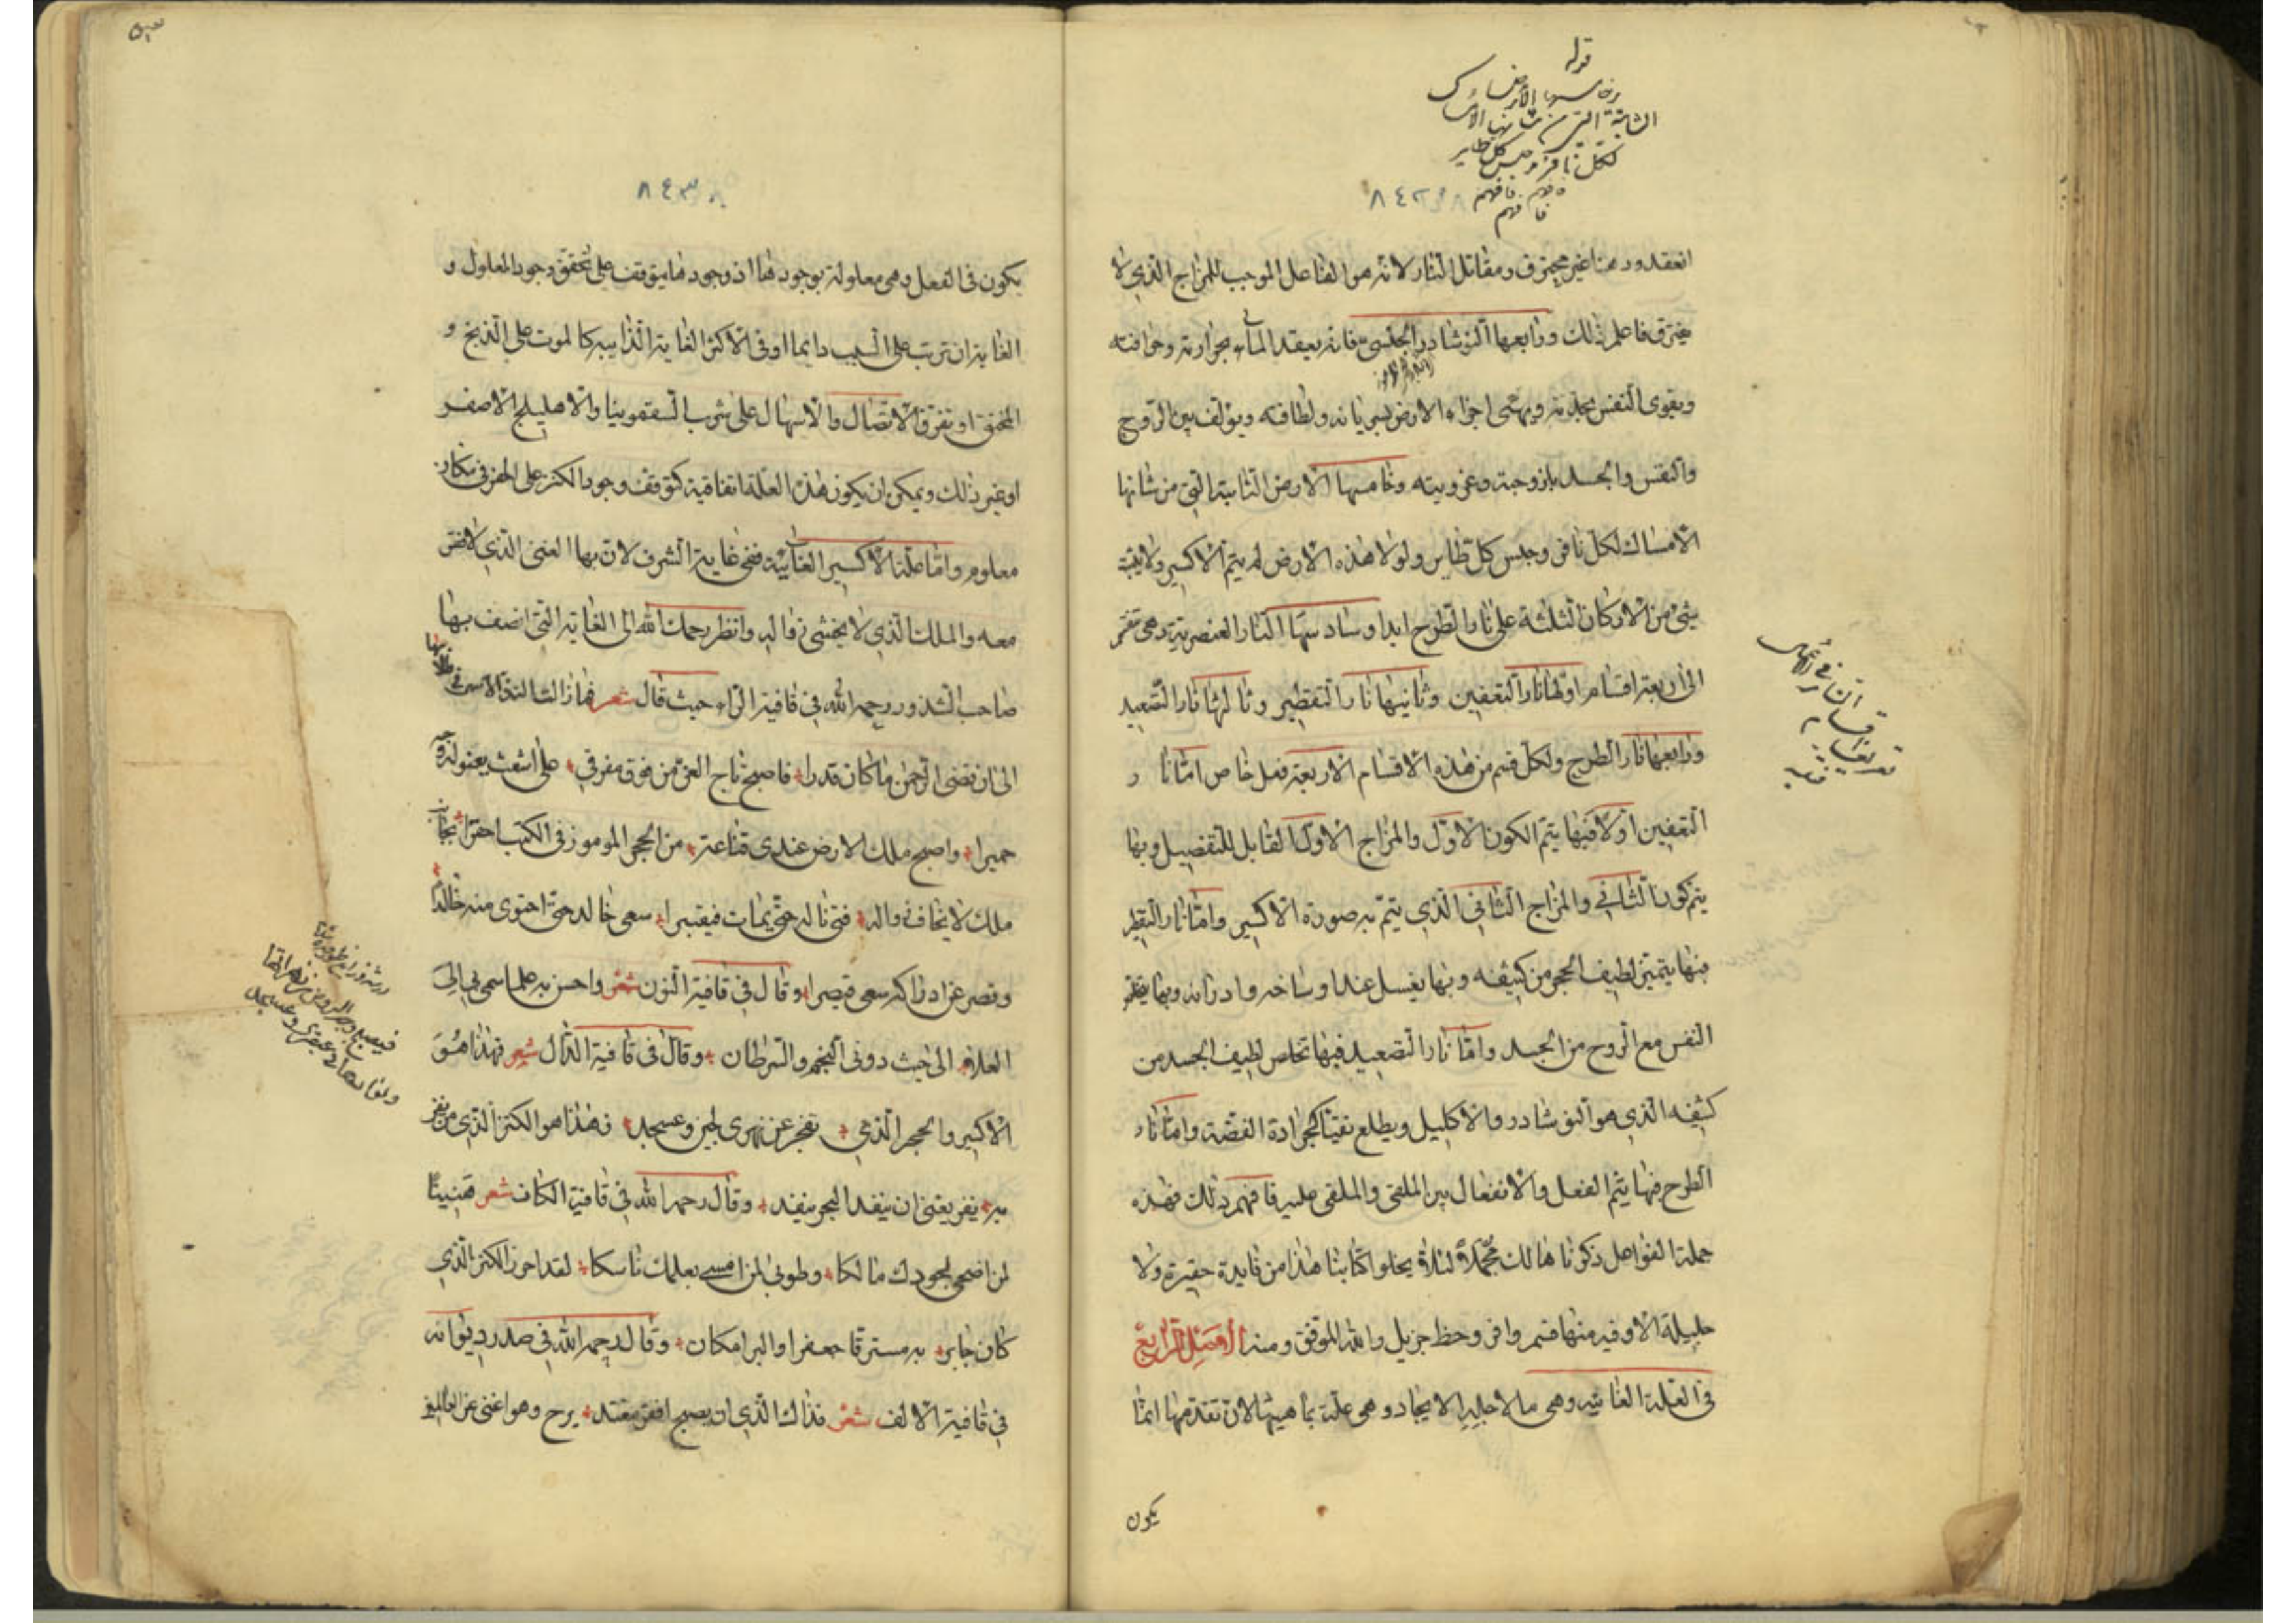 قوله
وخامسها الأرض
الثابتة التي من شانها الامساك
لكل نافر وحبس كل طاير
فافهم
٨٤٣٨
انعقد ودهننا غير محترق ومقاتل النار لانه هو الفاعل الموجب للمزاج الذي لا
يفترق فاعلم ذلك ورابعها النوشادر الجلدى فانه يعقد الماء بحرارته وحرافته
ويقوى النفس بحدته ويهبى اجزاء الارض بسريانه ولطافته ويؤلف بين الروح
والنفس والجسد بلزوجته وغرويته وخامسها الارض الثابتة التي من شانها
الامساك لكل نافر وحبس كل طاير ولولا هذه الارض لم يتم الاكسير ولا يثبت
شئ من الاركان الثلثة على نار الطرح ابدا وسادسها النار العنصرية وهى تنقسم
الى اربعة اقسام اولها نار التعفين وثانيها نار التقطير وثالثها نار التصعيد
ورابعها نار الطرح ولكل قسم من هذه الاقسام الاربعة فعل خاص اما نار
التعفين اولا فبها يتم الكون الاول والمزاج الاول القابل للتفصيل وبها
يتم كوننا الثانى والمزاج الثانى الذي يتم به صورة الاكسير واما نار التقطير
فبها يتميز لطيف الحجر من كثيفه وبها يغسل عنه اوساخه وادرانه وبها يقطر
النفس مع الروح من الجسد واما نار التصعيد فبها تخلص لطيف الجسد من
كثيفه الذي هو النوشادر والاكليل ويطلع نقيا كبرادة الفضة واما نار
الطرح فبها يتم الفعل والانفعال بين الملقى والملقى عليه فافهم ذلك فهذه
جملة الفواعل ذكرناها لك مجملا لئلا يخلوا كتابنا هذا من فايدة حقيرة ولا
جليلة الا وفيه منها قسم وافر وحظ جزيل والله الموفق ومنه الفصل الرابع
في العلة الغائية وهى ما لاجله الايجاد وهى علة بماهيتها لان تقدمها انما
يكون
اقسام النار
٨٤٣٨
يكون فى الفعل وهى معلولة بوجودها اذ وجودها يتوقف على تحقق وجود المعلول و
الغاية ان ترتب على السبب دايما اوفى الاكثر الغاية الذاتية كالموت على الذبح و
الخنق او تفرق الاتصال والاسهال على شرب السقمونيا والاهليلج الاصفر
او غير ذلك ويمكن ان يكون هذه العلة اتفاقية كتوقف وجود الكنز على الحفر فى مكان
معلوم واما علة الاكسير الغائية فهى غاية الشرف لان بها الغنى الذي لا فقر
معه والملك الذي لا يخشى زواله وانظر رحمك الله الى الغاية التي اتصف بها
صاحب الشذور رحمه الله فى قافية الراء حيث قال شعر
الى ان قضى الرحمن ما كان قدرا فاصبح تاج العز من فوق مفرقي على اشعث يعفو لذه
حميرا واصبح ملك الارض عندى قناعة من الحجر المرموز فى الكتب احقرا
ملك لا يخاف زواله فتى ناله حتى يمات فيقبرا سعى خالد حتى احتوى منه خالدا
وقصر عن ادراكه سعى قيصرا وقال فى قافية النون شعر واحسن به علما سمى بي الى
العلا الى حيث دونى النجم والسرطان وقال فى قافية الدال شعر فهذا هو
الاكسير والحجر الذي تفجر عن نهرى لجين وعسجد فهذا هو الكنز الذي من يفز
به يفز بغنى ان ينفد البحر ينفد وقال رحمه الله فى قافية الكاف شعر هنيئا
لمن اضحى لجودك مالكا وطوبى لمن امسى بعلمك ناسكا لقد احرز الكنز الذي
كان جابر به مسترقا جعفرا والبرامكا وقال رحمه الله فى صدر ديوانه
فى قافية الالف شعر فذاك الذي ان يصبح افقر مقتد يرح وهو اغنى